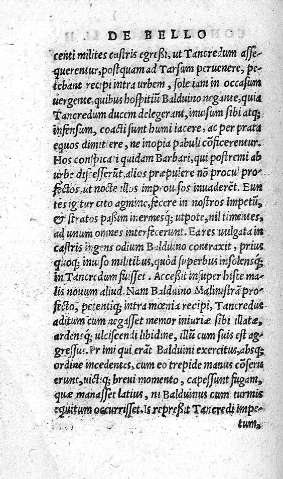 DE BELLO
centi milites castris egreßi, ut Tancredum asse-
querentur, postquam ad Tarsum peruenere, pe-
tebant recipi intra urbem, sole iam in occasum
uergente, quibus hospitiũ Balduino negante, quia
Tancredum ducem delegerant, inuisum sibi atq;
infensum, coacti sunt humi iacere, ac per prata
equos dimittere, ne inopia pabuli cõficerentur.
Hos conspicati quidam Barbari, qui postremi ab
urbe discesserũt, alios præiuere nõ procul pro-
fectos, ut nocte illos improuisos inuaderẽt. Eun
tes igitur cito agmine, fecere in nostros impetũ,
& stratos paßim inermesq; utpote, nil timẽtes,
ad unum omnes interfecerunt. Ea res uulgata in
castris ingens odium Balduino contraxit, prius
quoq; inuiso militibus, quòd superbius insolensq;
in Tancredum fuisset. Acceßit insuper hisce ma-
lis nouum aliud. Nam Balduino Malmistrã pro-
fecto, petentiq; intra mœnia recipi, Tancredus
aditum cum negasset memor iniuriæ sibi illatæ,
ardensq; ulciscendi libidine, illũ cum suis est ag-
gressus. Primi qui erãt Balduini exercitus, absq;
ordine incedentes, cum eo trepide manus cõserue
erunt, uictiq; breui momento, capessunt fugam,
quæ manasset latius, ni Balduinus cum turmis
equitum occurrisset. Is repreßit Tancredi impe-
tum,